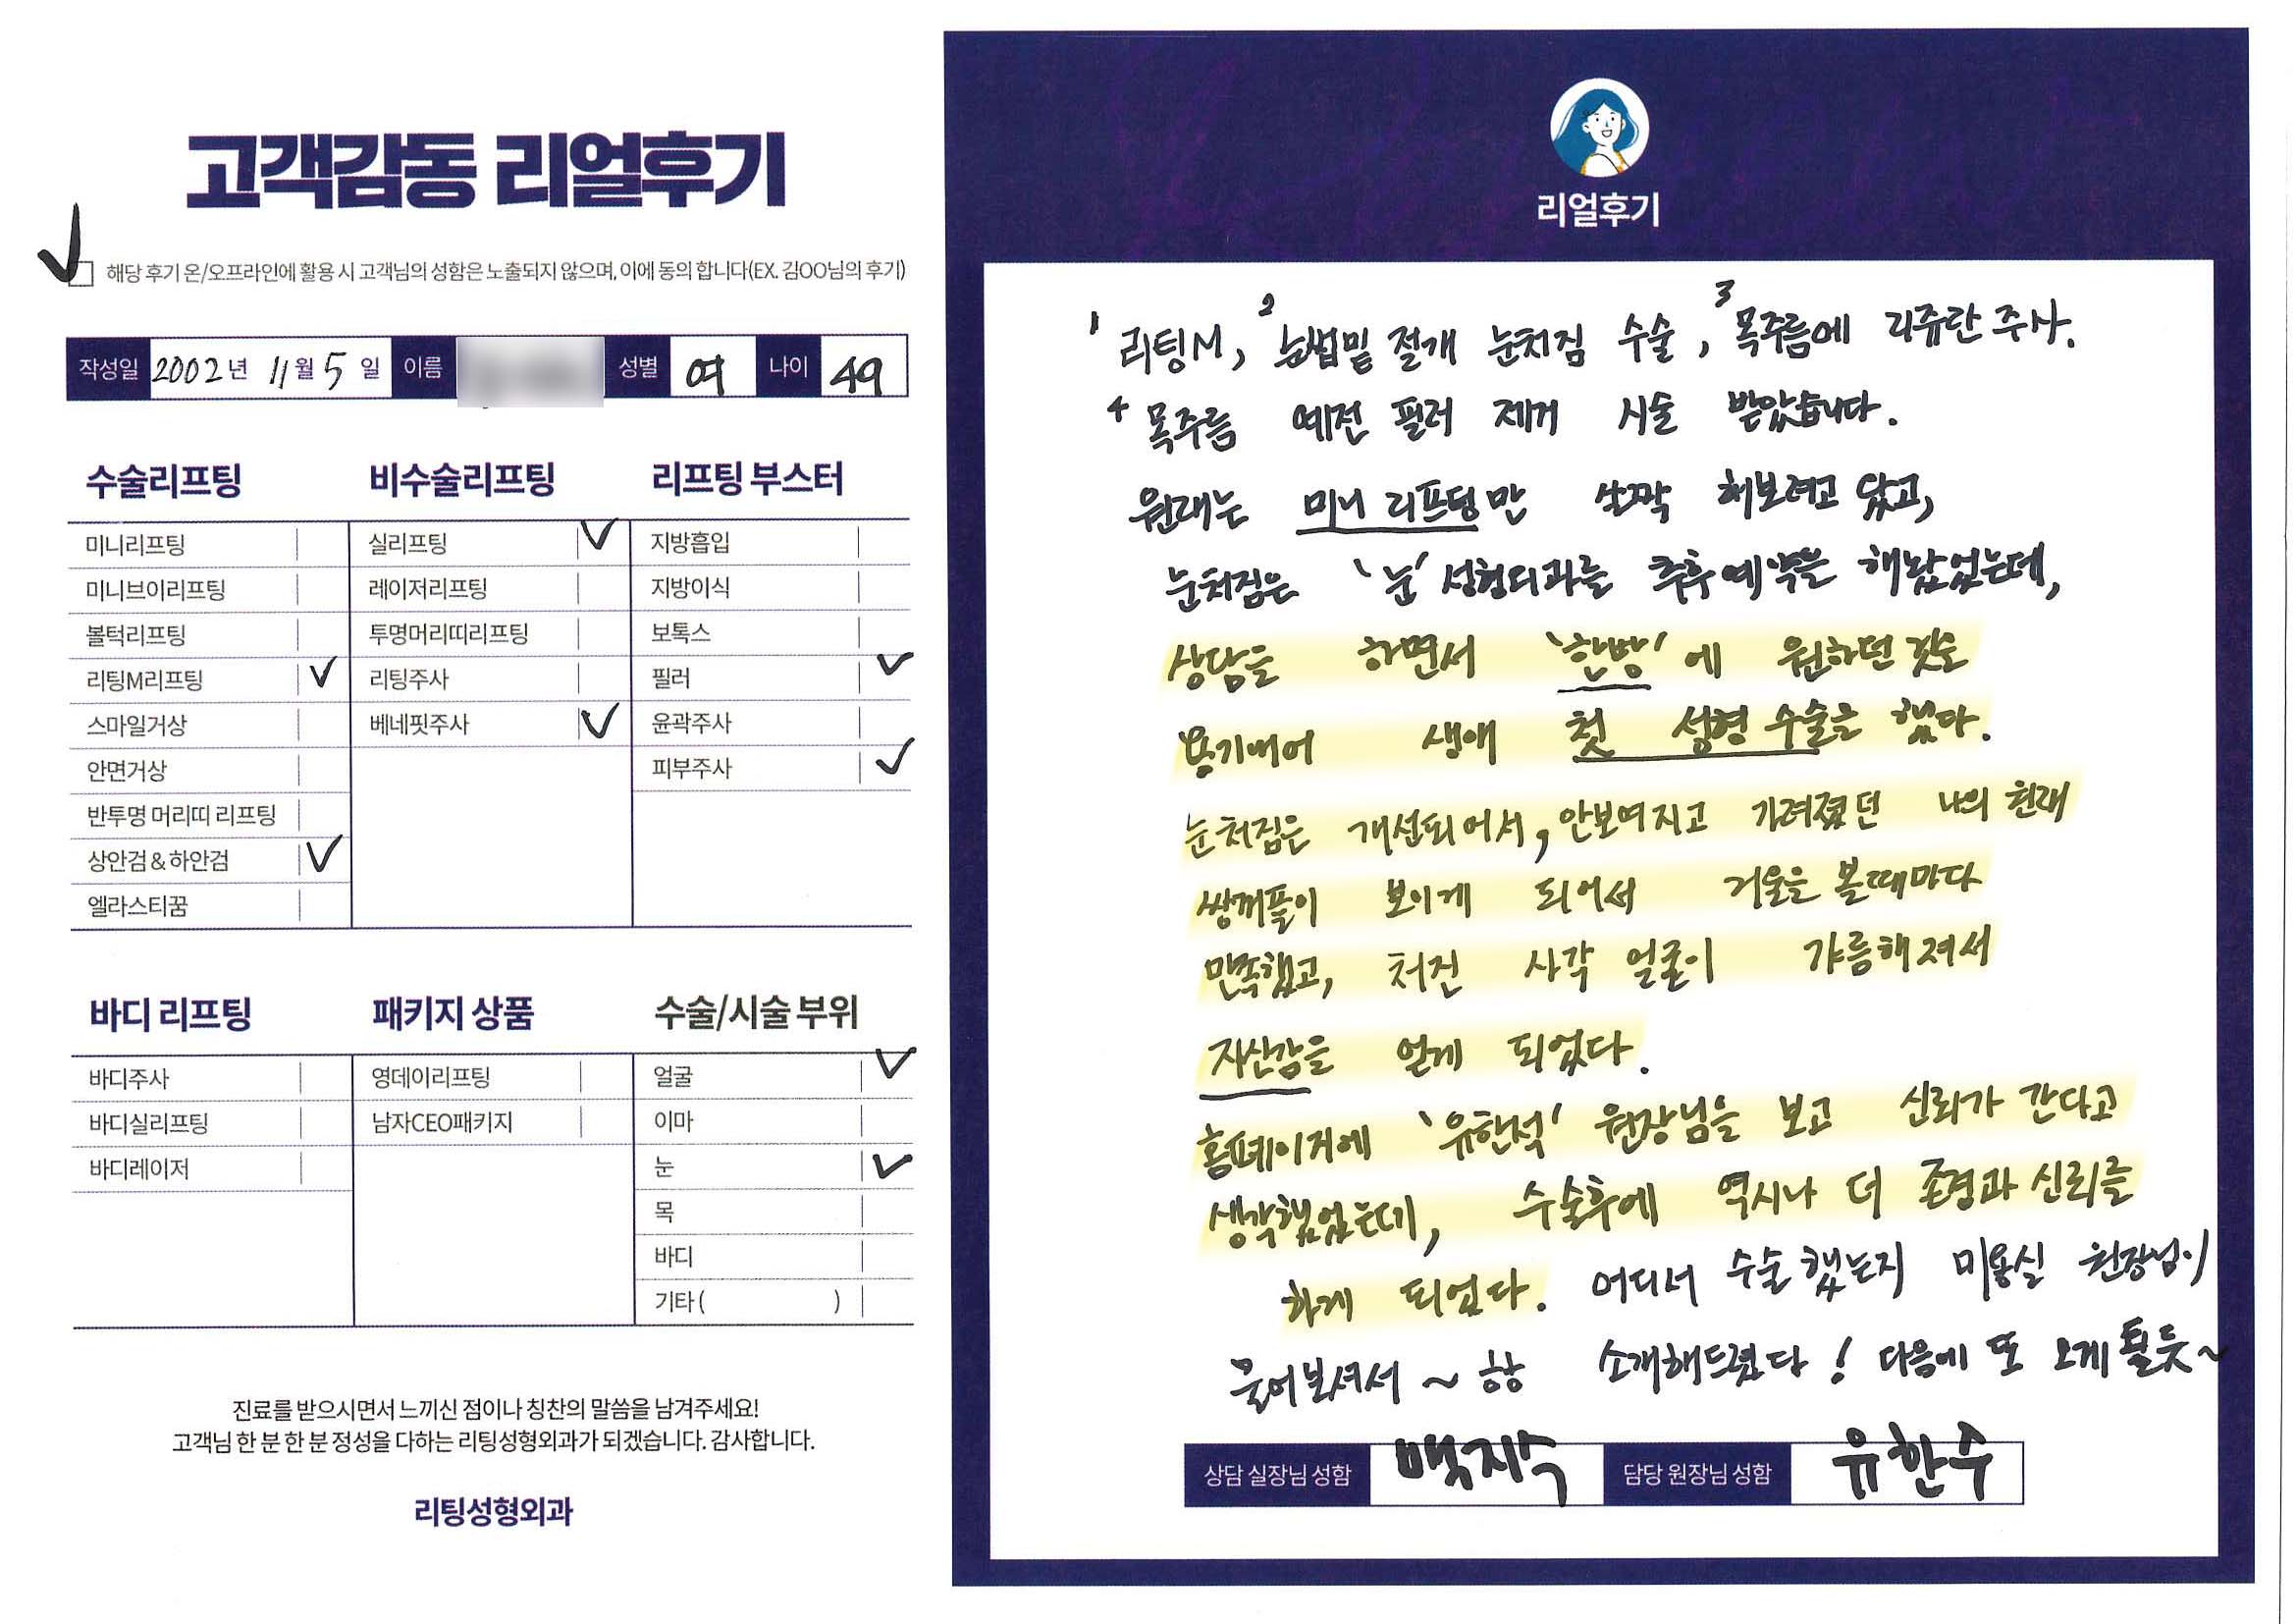 고객감동 리얼후기
해당 후기 온/오프라인에 활용 시 고객님의 성함은 노출되지 않으며, 이에 동의 합니다(EX. 김OO님의 후기)
작성일 2002년 11월 5일 이름 성별 여 나이 49
수술리프팅
미니리프팅
미니브이리프팅
볼턱리프팅
리팅M리프팅
스마일거상
안면거상
반투명 머리띠 리프팅
상안검 & 하안검
엘라스티꿈
비수술리프팅
실리프팅
레이저리프팅
투명머리띠리프팅
리팅주사
베네핏주사
리프팅 부스터
지방흡입
지방이식
보톡스
필러
윤곽주사
피부주사
바디 리프팅
바디주사
바디실리프팅
바디레이저
패키지 상품
영데이리프팅
남자CEO패키지
수술/시술 부위
얼굴
이마
눈
목
바디
기타 ( )
진료를 받으시면서 느끼신 점이나 칭찬의 말씀을 남겨주세요!
고객님 한 분 한 분 정성을 다하는 리팅성형외과가 되겠습니다. 감사합니다.
리팅성형외과
리얼후기
1 리팅M, 2 눈썹밑 절개 눈처짐 수술, 3 목주름에 리쥬란 주사.
4 목주름 예전 필러 제거 시술 받았습니다.
원래는 미니 리프팅만 살짝 해보려고 왔고,
눈처짐은 '눈' 성형외과를 추후예약을 해놨었는데,
상담을 하면서 '한방'에 원하던 것을
용기내어 생애 첫 성형 수술을 했다.
눈처짐은 개선되어서, 안보여지고 가려졌던 나의 원래
쌍꺼풀이 보이게 되어서 거울을 볼때마다
만족했고, 처진 사각 얼굴이 갸름해져서
자신감을 얻게 되었다.
홈페이지에 '유한석' 원장님을 보고 신뢰가 간다고
생각했었는데, 수술후에 역시나 더 존경과 신뢰를
하게 되었다. 어디서 수술했는지 미용실 원장님이
물어보셔서 ~ 소개해드렸다! 다음에 또 오게 될듯~
상담 실장님 성함 백지수 담당 원장님 성함 유한수